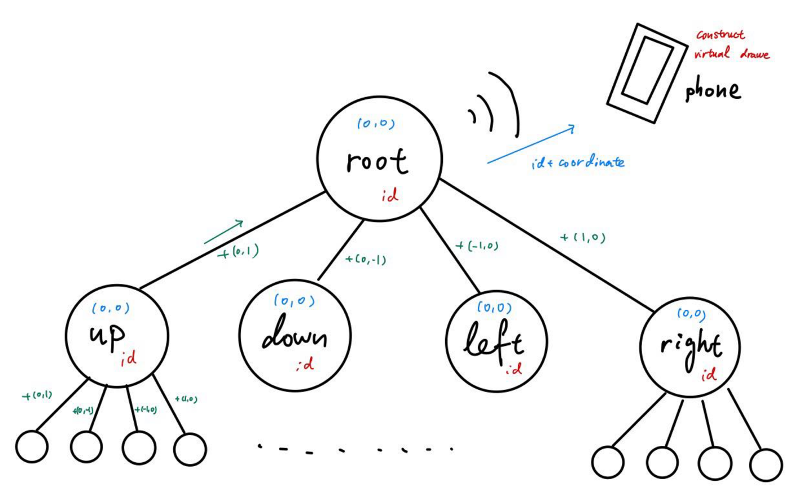 construct
virtual drawe
phone
(0,0)
root
id
id+ coordinate
+(0,1)
+(0,-1)
+(-1,0)
+(1,0)
(0,0)
up
id
(0,0)
down
id
(0,0)
left
id
(0,0)
right
id
+(0,1)
+(0,-1)
+(-1,0)
+(1,0)